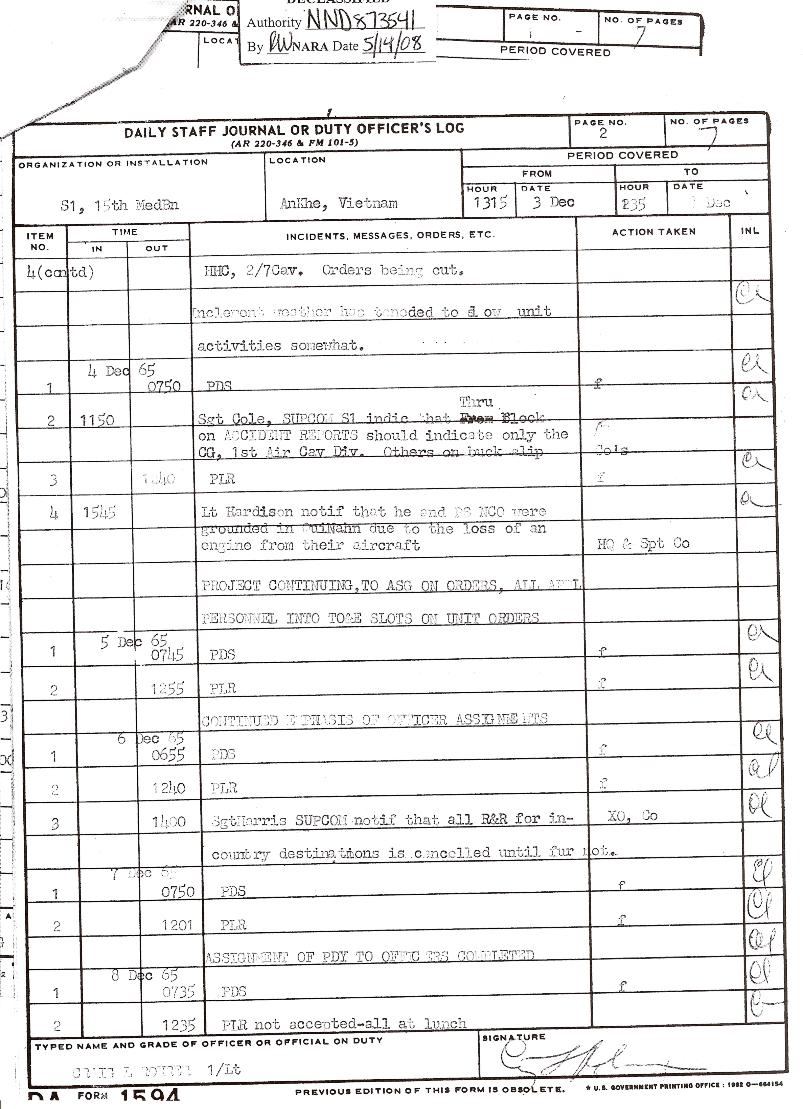 DECLASSIFIED
Authority NND873541
By RW NARA Date 5/14/08
RNAL O
AR 220-346 &
LOCAT
PAGE NO.
NO. OF PAGES
1 -
7
PERIOD COVERED
DAILY STAFF JOURNAL OR DUTY OFFICER'S LOG
(AR 220-346 & FM 101-5)
PAGE NO.
2
NO. OF PAGES
7
ORGANIZATION OR INSTALLATION
S1, 15th MedBn
LOCATION
AnKhe, Vietnam
PERIOD COVERED
FROM
TO
HOUR
1315
DATE
3 Dec
HOUR
235
DATE
Dec
ITEM NO.
TIME
IN
OUT
INCIDENTS, MESSAGES, ORDERS, ETC.
ACTION TAKEN
INL
4(contd) HHC, 2/7Cav. Orders being cut.
Inclement weather has tended to slow unit
activities somewhat.
4 Dec 65
1 0750 PDS f
Thru
2 1150 Sgt Cole, SUPCOM S1 indic that Block
on ACCIDENT REPORTS should indicate only the
CG, 1st Air Cav Div. Others on buck slip Co's
3 1240 PLR f
4 1545 Lt Hardison notif that he and PS NCO were
grounded in QuiNahn due to the loss of an
engine from their aircraft HQ & Spt Co
PROJECT CONTINUING,TO ASG ON ORDERS, ALL APPL
PERSONNEL INTO TO&E SLOTS ON UNIT ORDERS
5 Dec 65
1 0745 PDS f
2 1255 PLR f
CONTINUED EMPHASIS OF OFFICER ASSIGNMENTS
6 Dec 65
1 0655 PDS f
2 1240 PLR f
3 1400 SgtHarris SUPCOM notif that all R&R for in- XO, Co
country destinations is cancelled until fur not.
7 Dec 65
1 0750 PDS f
2 1201 PLR f
ASSIGNMENT OF PDY TO OFFICERS COMPLETED
8 Dec 65
1 0735 PDS f
2 1235 PLR not accepted-all at lunch
TYPED NAME AND GRADE OF OFFICER OR OFFICIAL ON DUTY
1/Lt
SIGNATURE
DA FORM 1594
PREVIOUS EDITION OF THIS FORM IS OBSOLETE.
* U.S. GOVERNMENT PRINTING OFFICE : 1962 O-664154